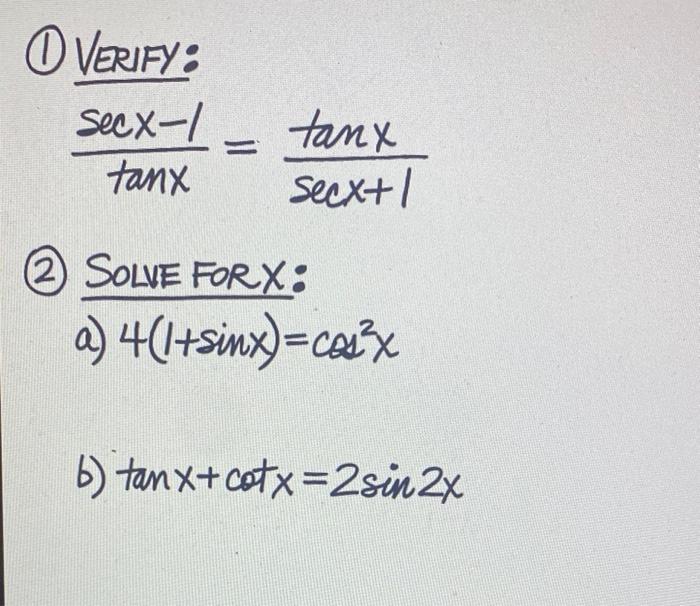 ① VERIFY:
secx-1/tanx = tanx/secx+1
② SOLVE FOR X:
a) 4(1+sinx)=cos²x
b) tanx+cotx=2sin2x